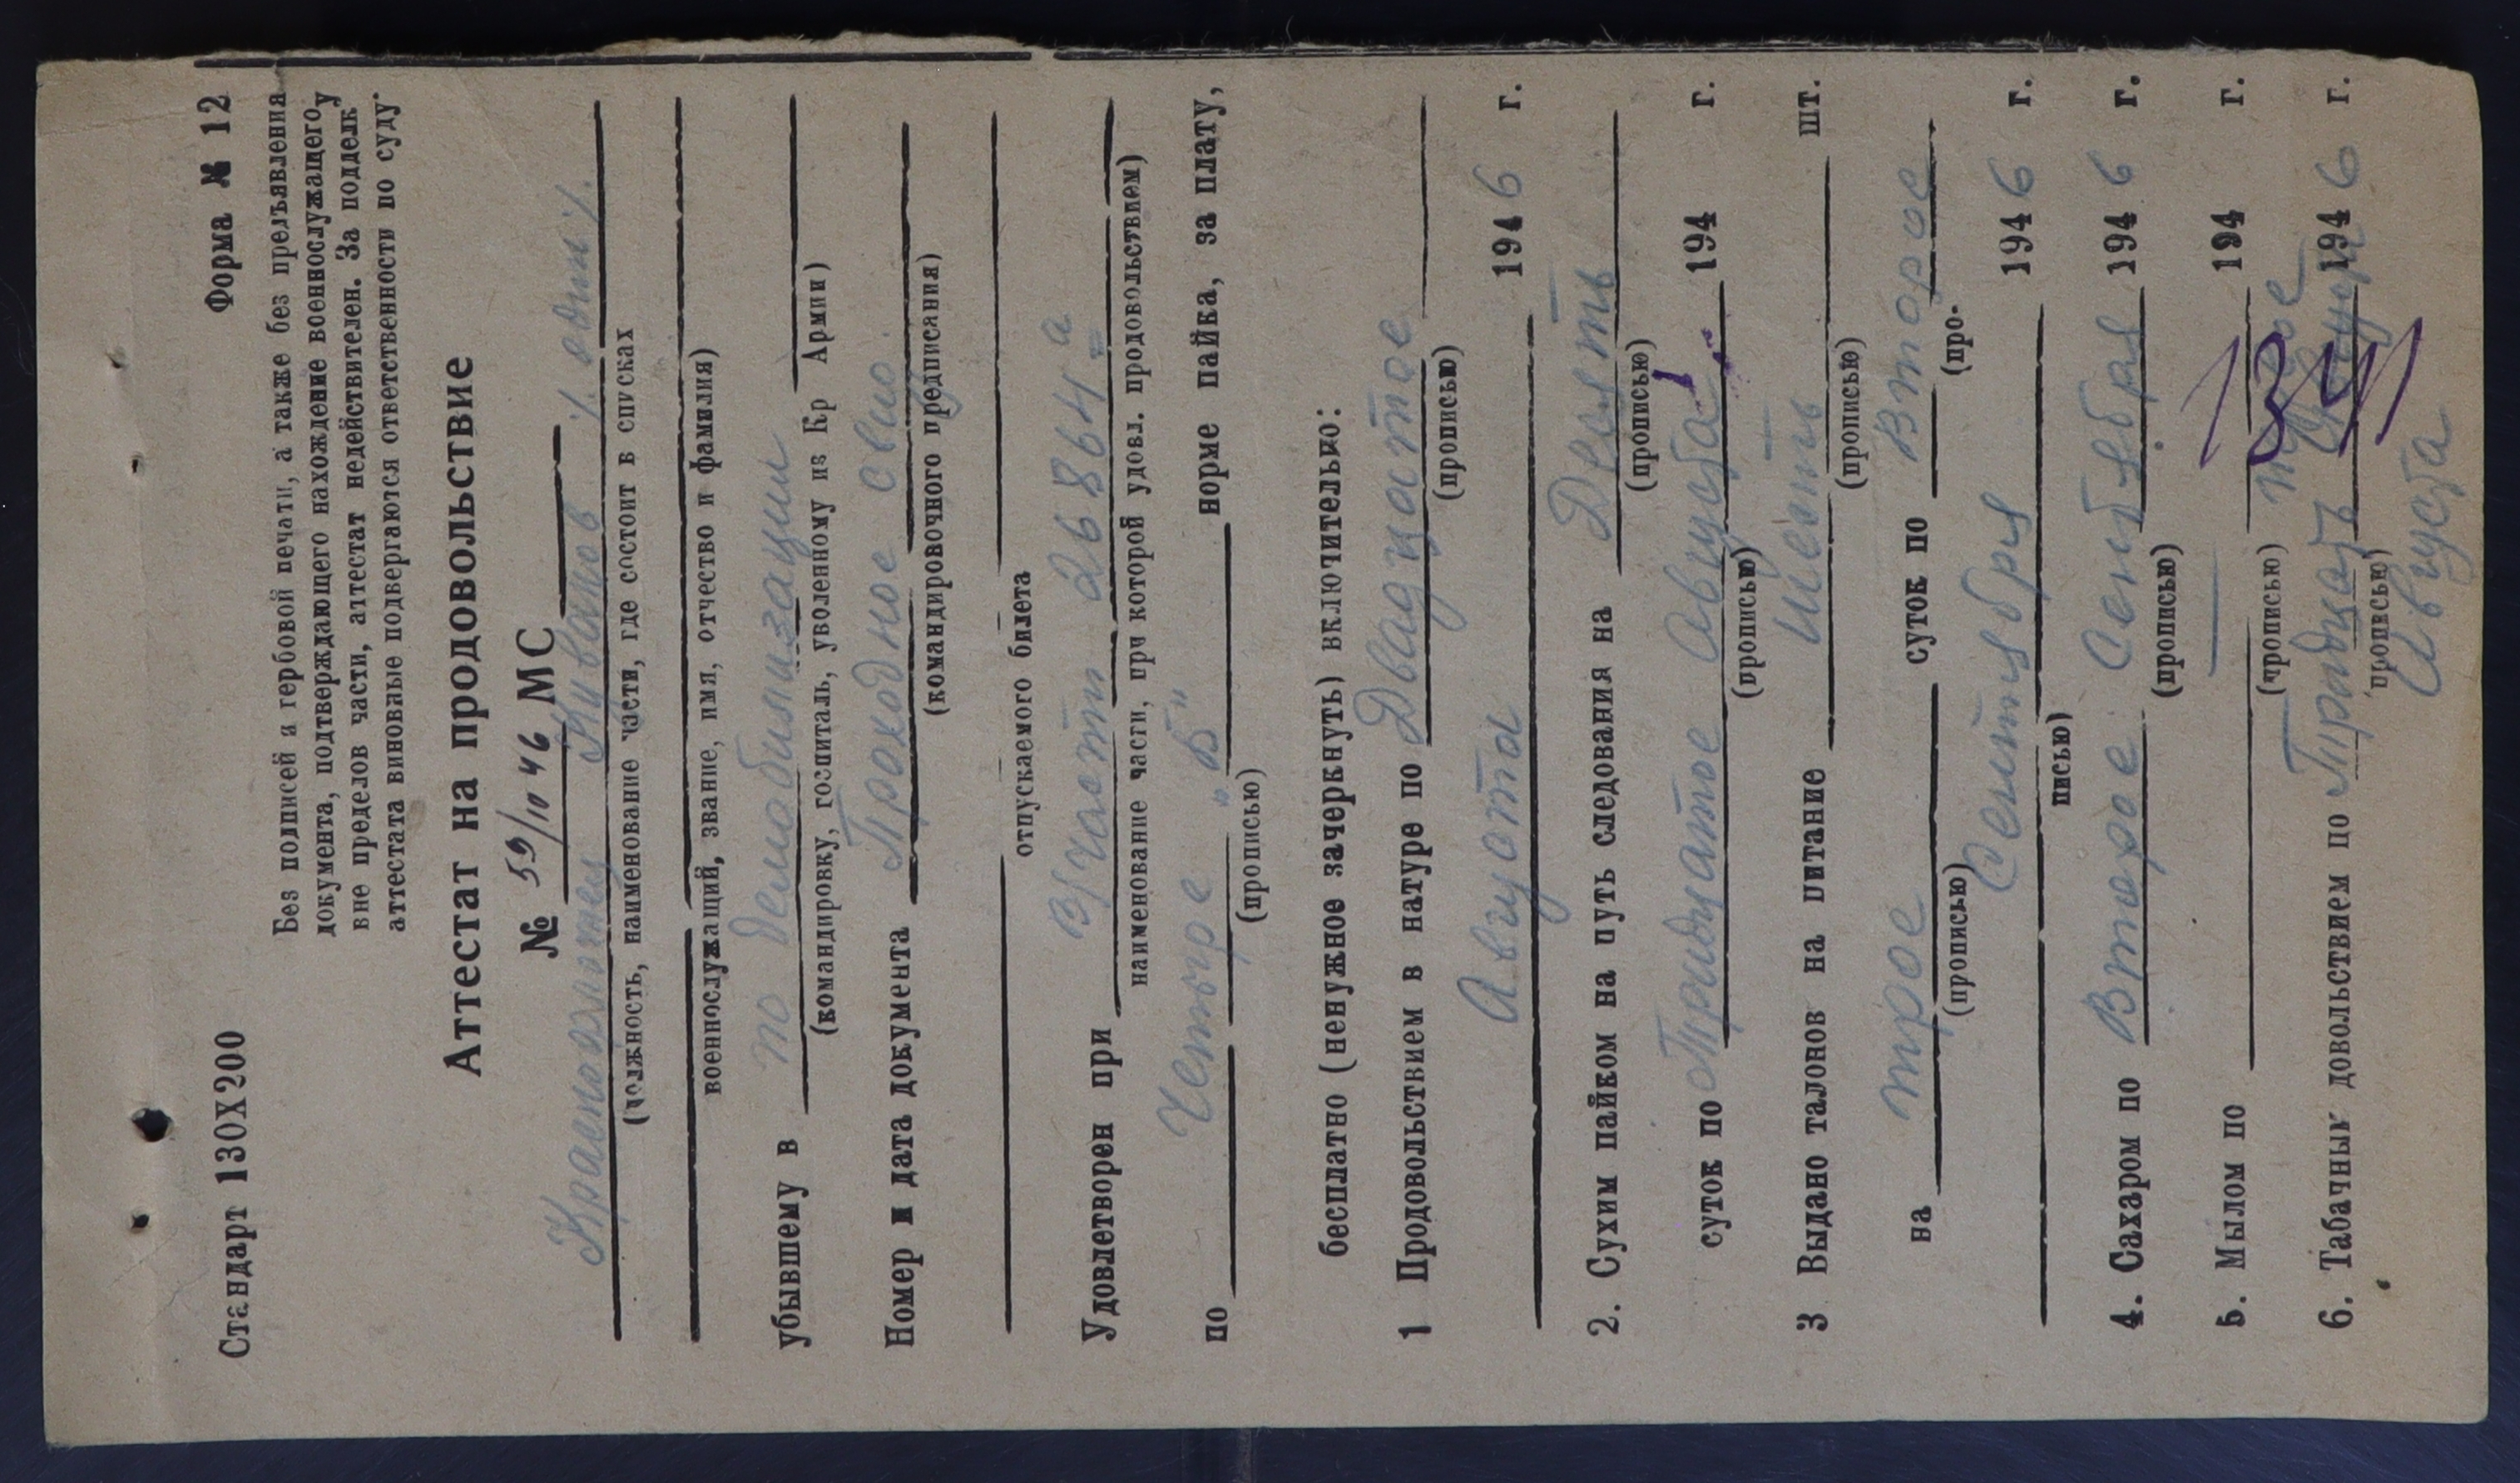 Стандарт 130X200
Форма № 12
Без подписей и гербовой печати, а также без предъявления
документа, подтверждающего нахождение военнослужащего
вне пределов части, аттестат недействителен. За подделку
аттестата виновные подвергаются ответственности по суду.
Аттестат на продовольствие
№ 59/10 46 МС
Красноармеец
(должность, наименование части, где состоит в списках
военнослужащий, звание, имя, отчество и фамилия)
убывшему в по демобилизации
(командировку, госпиталь, уволенному из Кр Армии)
Номер и дата документа Проходное свид.
(командировочного предписания)
отпускаемого билета
Удовлетворен при В/части 26864 а
наименование части, при которой удовл. продовольствием)
по Четыре „Б" норме пайка, за плату,
(прописью)
бесплатно (ненужное зачеркнуть) включительно:
1 Продовольствием в натуре по Двадцатое
(прописью)
Августа 1946 г.
2. Сухим пайком на путь следования на Десять
(прописью)
суток по Тридцатое Августа 194 г.
(прописью)
3 Выдано талонов на питание Шесть шт.
(прописью)
на трое суток по Второе
(прописью) (про-
Сентября 1946 г.
писью)
4. Сахаром по Второе Сентября 1946 г.
(прописью)
5. Мылом по 194 г.
(прописью)
6. Табачным довольствием по Тридцать 1946 г.
прописью)
Августа